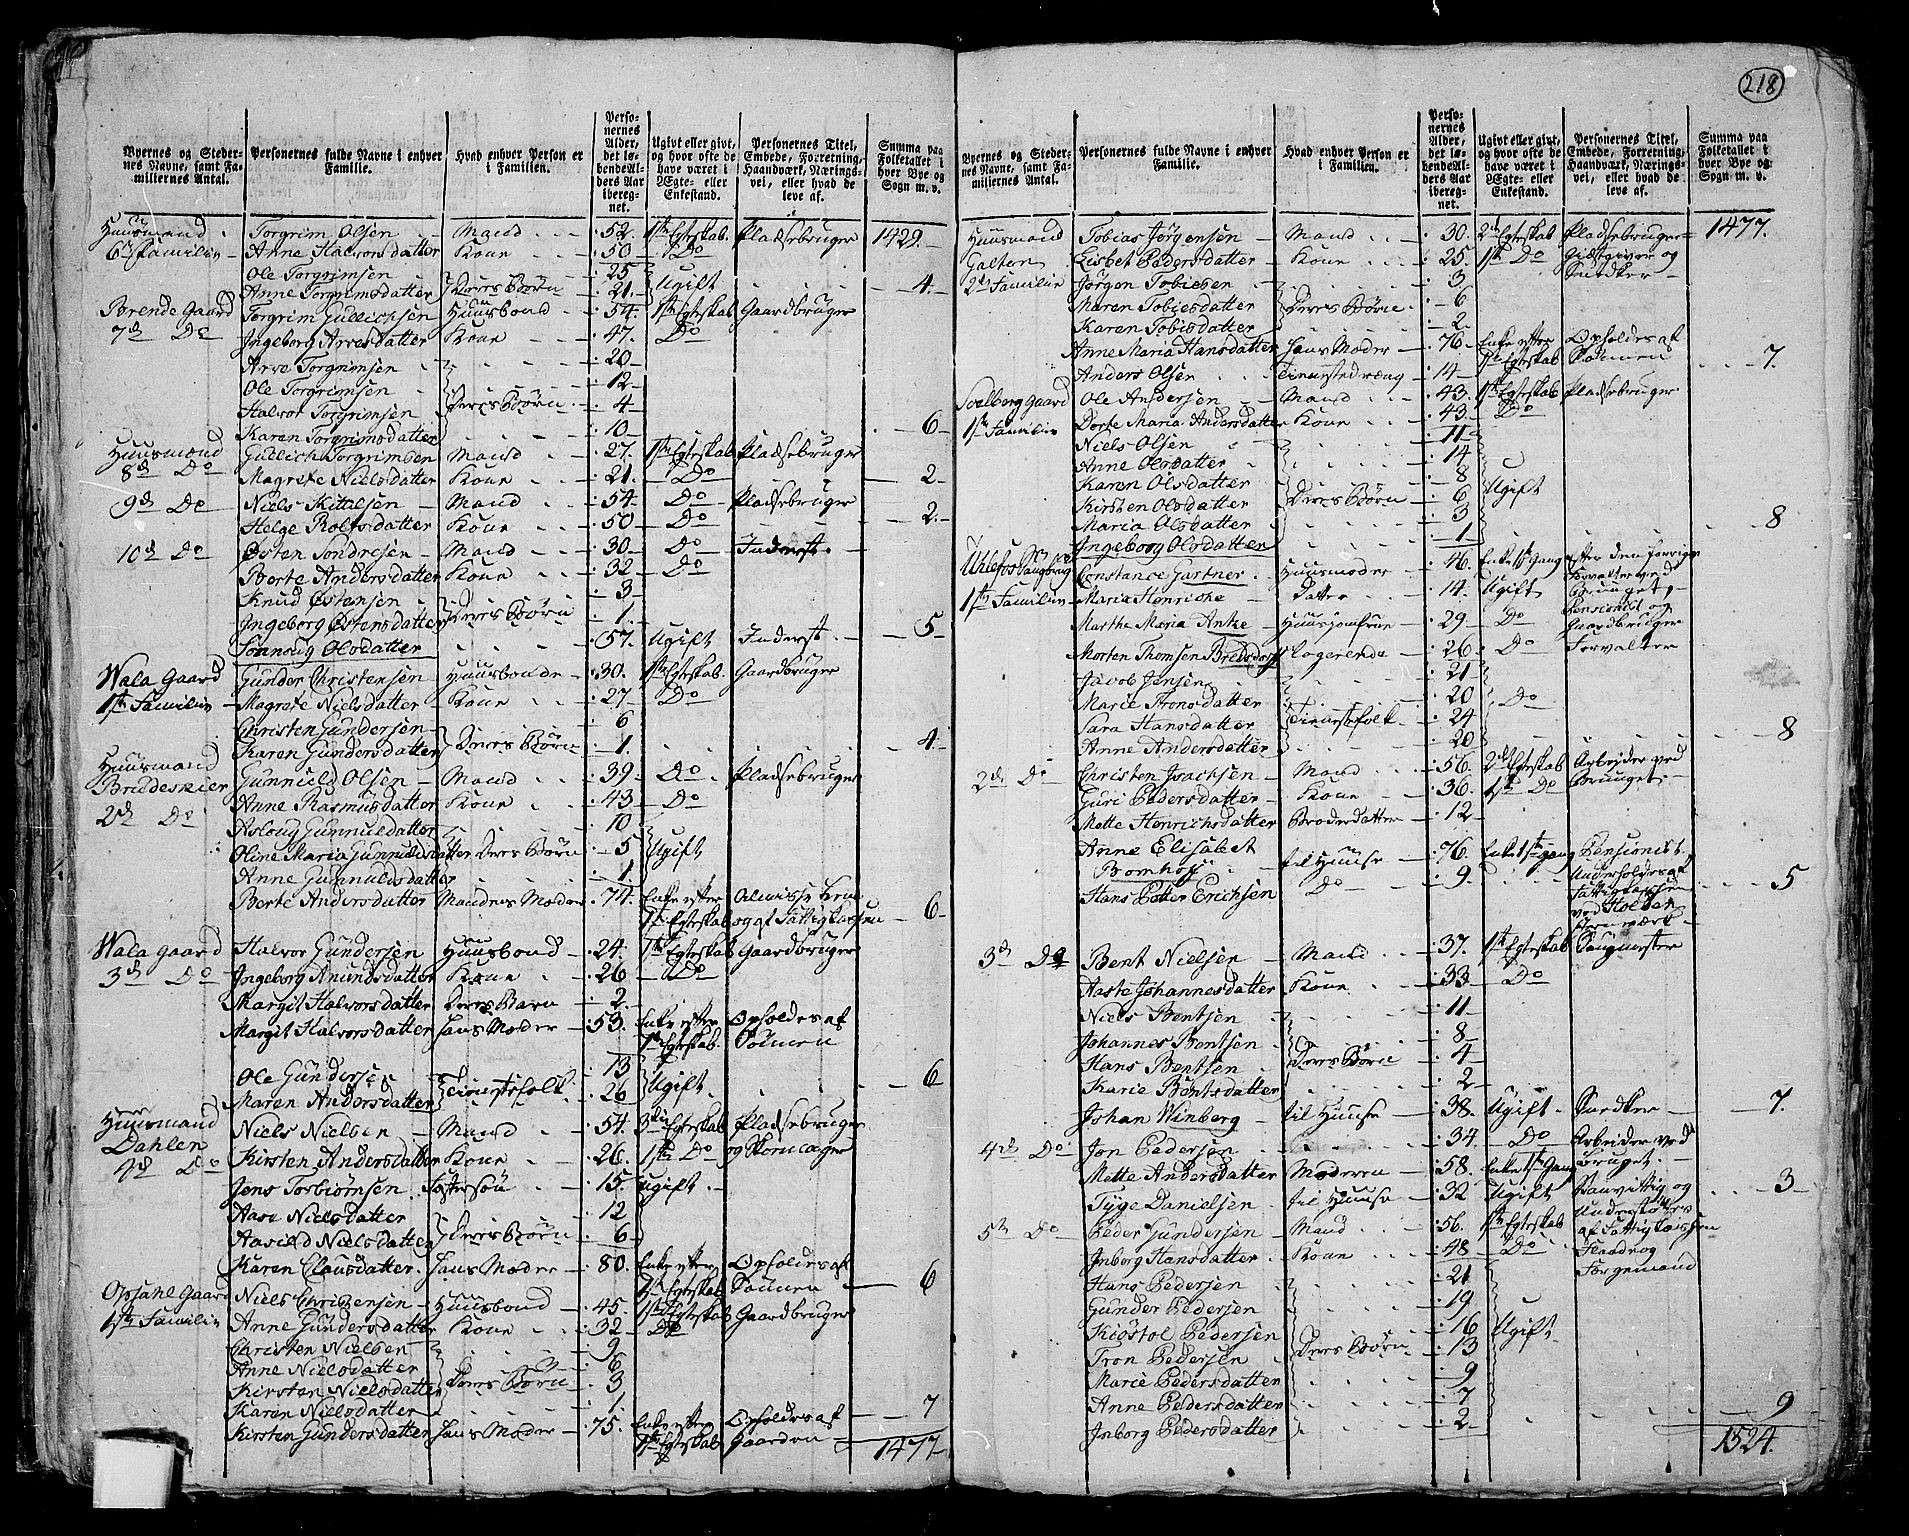 218
Byernes og Steder- | Personernes fulde Navne i enhver | Hvad enhver Person er | Perso- | Ugivt eller givt, | Personernes Titel, | Summa paa
nes Navne, samt Fa- | Familie. | i Familien. | nernes | og hvor ofte de | Embede, Forretning, | Folketallet i
miliernes Antal. | Alder, | have været i | Haandværk, Nærings- | hver Bye og
det lø- | Ægte- eller | vei, eller hvad de | Sogn m. v.
bende Al- | Enkestand. | leve af.
ders Aar
ibereg-
net.
Huusmand | Torgrim Olsen | Mand | 52. | 1ste Egteskab. | Pladsebruger | 1429.
6te Familie | Anne Halvorsdatter | Kone | 50 | Do
Ole Torgrimsen | 25
Anne Torgrimsdatter | Deres Børn | 21. | Ugift | 4.
Brende Gaard | Torgrim Gullichsen | Huusbond | 54. | 1ste Egteskab | Gaardbruger
7de Do | Ingeborg Arvesdatter | Kone | 47. | Do
Arve Torgrimsen | 20
Ole Torgrimsen | 12
Halvor Torgrimsen | Deres Børn | 4
Karen Torgrimsdatter | 10 | 6
Huusmand | Gullich Torgrimsen | Mand | 27. | 1ste Egteskab | Pladsebruger
8de Do | Magrete Nielsdatter | Kone | 21. | Do | 2
9de Do | Niels Kittelsen | Mand | 54 | Do | Pladsebruger
Helge Rolfsdatter | Kone | 50 | Do | 2.
10de Do | Østen Sondresen | Mand | 30 | Do | Inderst.
Berte Andersdatter | Kone | 32 | Do
Knud Østensen | 3
Ingeborg Østensdatter | Deres Børn | 1.
Sønnoug Olsdatter | 57. | Ugift | Inderst. | 5
Wala Gaard | Gunder Christensen | Huusbonde | 30. | 1ste Egteskab. | Gaardbruger
1ste Familie | Magrete Nielsdatter | Kone | 27 | Do
Christen Gundersen | 6
Karen Gundersdatter | Deres Børn | 1. | 4
Huusmand | Gunnield Olsen | Mand | 39. | Do | Pladsebruger
Brudeskier | Anne Rasmusdatter | Kone | 43 | Do
2de Do | Asloug Gunnuldatter | 10
Oline Maria Gunnuldsdatter | Deres Børn | 5 | Ugift
Anne Gunnuldsdatter | 1
Berte Andersdatter | Mandens Moder | 74. | Enke efter | Almisse Lem
1ste Egteskab | og af Fattigkassen | 6
Wala Gaard | Halvor Gundersen | Huusbond | 24. | 1ste Egteskab | Gaardbruger
3de Do | Ingeborg Anundsdatter | Kone | 26 | Do
Margit Halvorsdatter | Deres Barn | 2.
Margit Halvorsdatter | hans Moder | 53. | Enke efter | Opholdes af
1ste Egteskab. | Sønnen
Ole Gundersen | 13
Maren Andersdatter | Tienestefolk | 26 | Ugift | 6
Huusmand | Niels Nielsen | Mand | 54. | 3die Egteskab | Pladsebruger
Dahlen | Kirsten Andersdatter | Kone | 26. | 1ste Do | og Skomager
4de Do | Jens Torbiørnsen | Fostersøn | 15. | ugift
Aase Nielsdatter | 12
Aasild Nielsdatter | Deres Børn | 6
Karen Clausdatter | hans Moder | 80. | Enke efter | Opholdes af
1ste Egteskab | Sønnen | 6
Opsahl Gaard | Niels Christensen | Huusbond | 45. | 1ste Egteskab | Gaardbruger
1ste Familie | Anne Gundersdatter | Kone | 32 | Do
Christen Nielsen | 9
Anne Nielsdatter | 6
Kirsten Nielsdatter | Deres Børn | 3
Karen Nielsdatter | 1. | 7
Kirsten Gundersdatter | hans Moder | 75. | Enke efter | Opholdes af
1ste Egteskab | Gaarden | 1477
Byernes og Steder- | Personernes fulde Navne i enhver | Hvad enhver Person er | Perso- | Ugivt eller givt, | Personernes Titel, | Summa paa
nes Navne, samt Fa- | Familie. | i Familien. | nernes | og hvor ofte de | Embede, Forretning, | Folketallet i
miliernes Antal. | Alder, | have været i | Haandværk, Nærings- | hver Bye og
det lø- | Ægte- eller | vei, eller hvad de | Sogn m. v.
bende Al- | Enkestand. | leve af.
ders Aar
ibereg-
net.
Huusmand | Tobias Jørgensen | Mand | 30. | 2den Egteskab | Pladsebruger | 1477.
Galten | Lisbet Pedersdatter | Kone | 25 | 1ste Do | Giæstgiver og
2de Familie | Jørgen Tobiesen | 3 | Snedker
Maren Tobiesdatter | Deres Børn | 6
Karen Tobisdatter | 2.
Anne Maria Hansdatter | hans Moder | 76. | Enke efter | Opholdes af
1ste Egteskab | Sønnen | 7.
Anders Olsen | Tienestedræng | 14
Soelberg Gaard | Ole Andersen | Mand | 43. | 1ste Egteskab | Pladsebruger
1ste Familie | Dorte Maria Andersdatter | Kone | 43. | Do
Niels Olsen | 11
Anne Olsdatter | 14
Karen Olsdatter | 8
Kirsten Olsdatter | Deres Børn | 6 | Ugift
Maria Olsdatter | 3
Ingeborg Olsdatter | 1 | 8
Uhlefos Saugbrug | Constance Gartner | Huusmoder | 46. | Enke 1ste Gang | efter den forrige
1ste Familie | Maria Henricke | Datter | 14. | Ugift | Forvalter ved
Bruuget,
Pensionist og
Martha Maria Anke | Huusjomfrue | 29. | Do | Gaardbruger
Morten Thomsen Bredsdorf | Logerende | 26 | Do | Forvalter
Jacob Jensen | 21
Marie Tronsdatter | 20 | Do
Sara Hansdatter | Tienestefolk | 24
Anne Andersdatter | 20 | 8
2de Do | Christen Isachsen | Mand | 56. | 2det Egteskab | Arbeider ved
Guri Pedersdatter | Kone | 36. | 1ste Do | Bruuget.
Mette Henrichsdatter | Broderdatter | 12
Anne Elisabet
Bomhoff | til Huuse | 76. | Enke 1ste gang | Pensionist.
Hans Petter Erichsen | Do | 9. | Underholdes af
Fattigkassen | 5
ved Holden
Jernværk
3de Do | Bent Nielsen | Mand | 37. | 1ste Egteskab | Saugmester
Aaste Johannesdatter | Kone | 33 | Do
Niels Bentsen | 11
Johannes Bentsen | 8
Hans Bentsen | Deres Børn | 4
Karie Bentsdatter | 2
Johan Winberg | til Huuse | 38. | Ugift | Snedker | 7.
4de Do | Jon Pedersen | 34. | Do | Arbeider ved
Mette Andersdatter | Moderen | 58. | Enke 1ste Gang | Bruget.
Tyge Danielsen | til Huuse | 32 | Ugift | Vanvittig og | 3
Understøttes
5te Do | Peder Gundersen | Mand | 56. | 1ste Egteskab | af Fattigkassen
Inborg Hansdatter | Kone | 48 | Do
Forgemand
Hans Pedersen | 21
Gunder Pedersen | 19
Kiøstol Pedersen | 16 | Ugift
Tron Pedersen | Deres Børn | 13
Marie Pedersdatter | 9
Anne Pedersdatter | 7
Inborg Pedersdatter | 2 | 9
1524.